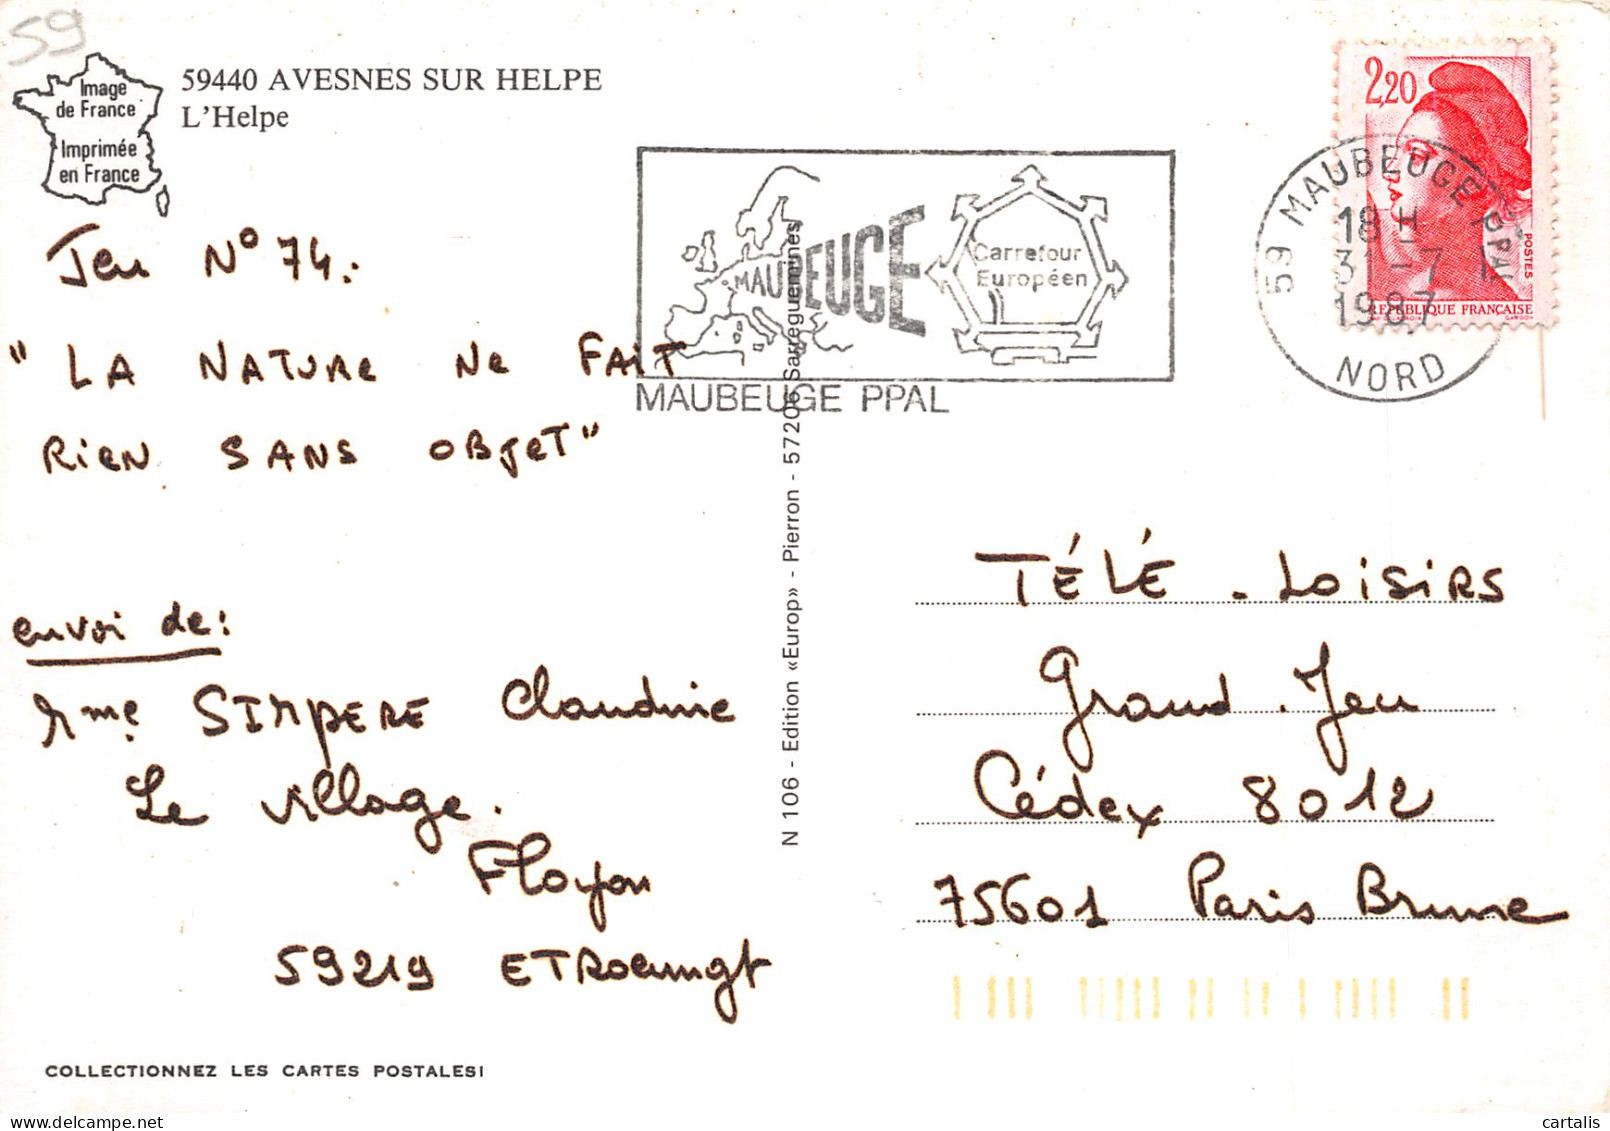 59
Image
de France
Imprimée
en France
59440 AVESNES SUR HELPE
L'Helpe
Jeu N° 74.
"LA NATURE NE FAIT
RIEN SANS OBJET"
envoi de:
Mme SIMPERE Claudine
Le village.
Floyon
59219 ETROEUNGT
COLLECTIONNEZ LES CARTES POSTALES!
N 106 - Edition «Europ» - Pierron - 57206 Sarreguemines
MAUBEUGE
Carrefour
Européen
MAUBEUGE PPAL
59 MAUBEUGE PPAL
18 H
31-7
1987
NORD
2,20
POSTES
REPUBLIQUE FRANÇAISE
TÉLÉ-LOISIRS
Grand-Jeu
Cédex 8012
75601 Paris Brune
cartalis
www.delcampe.net